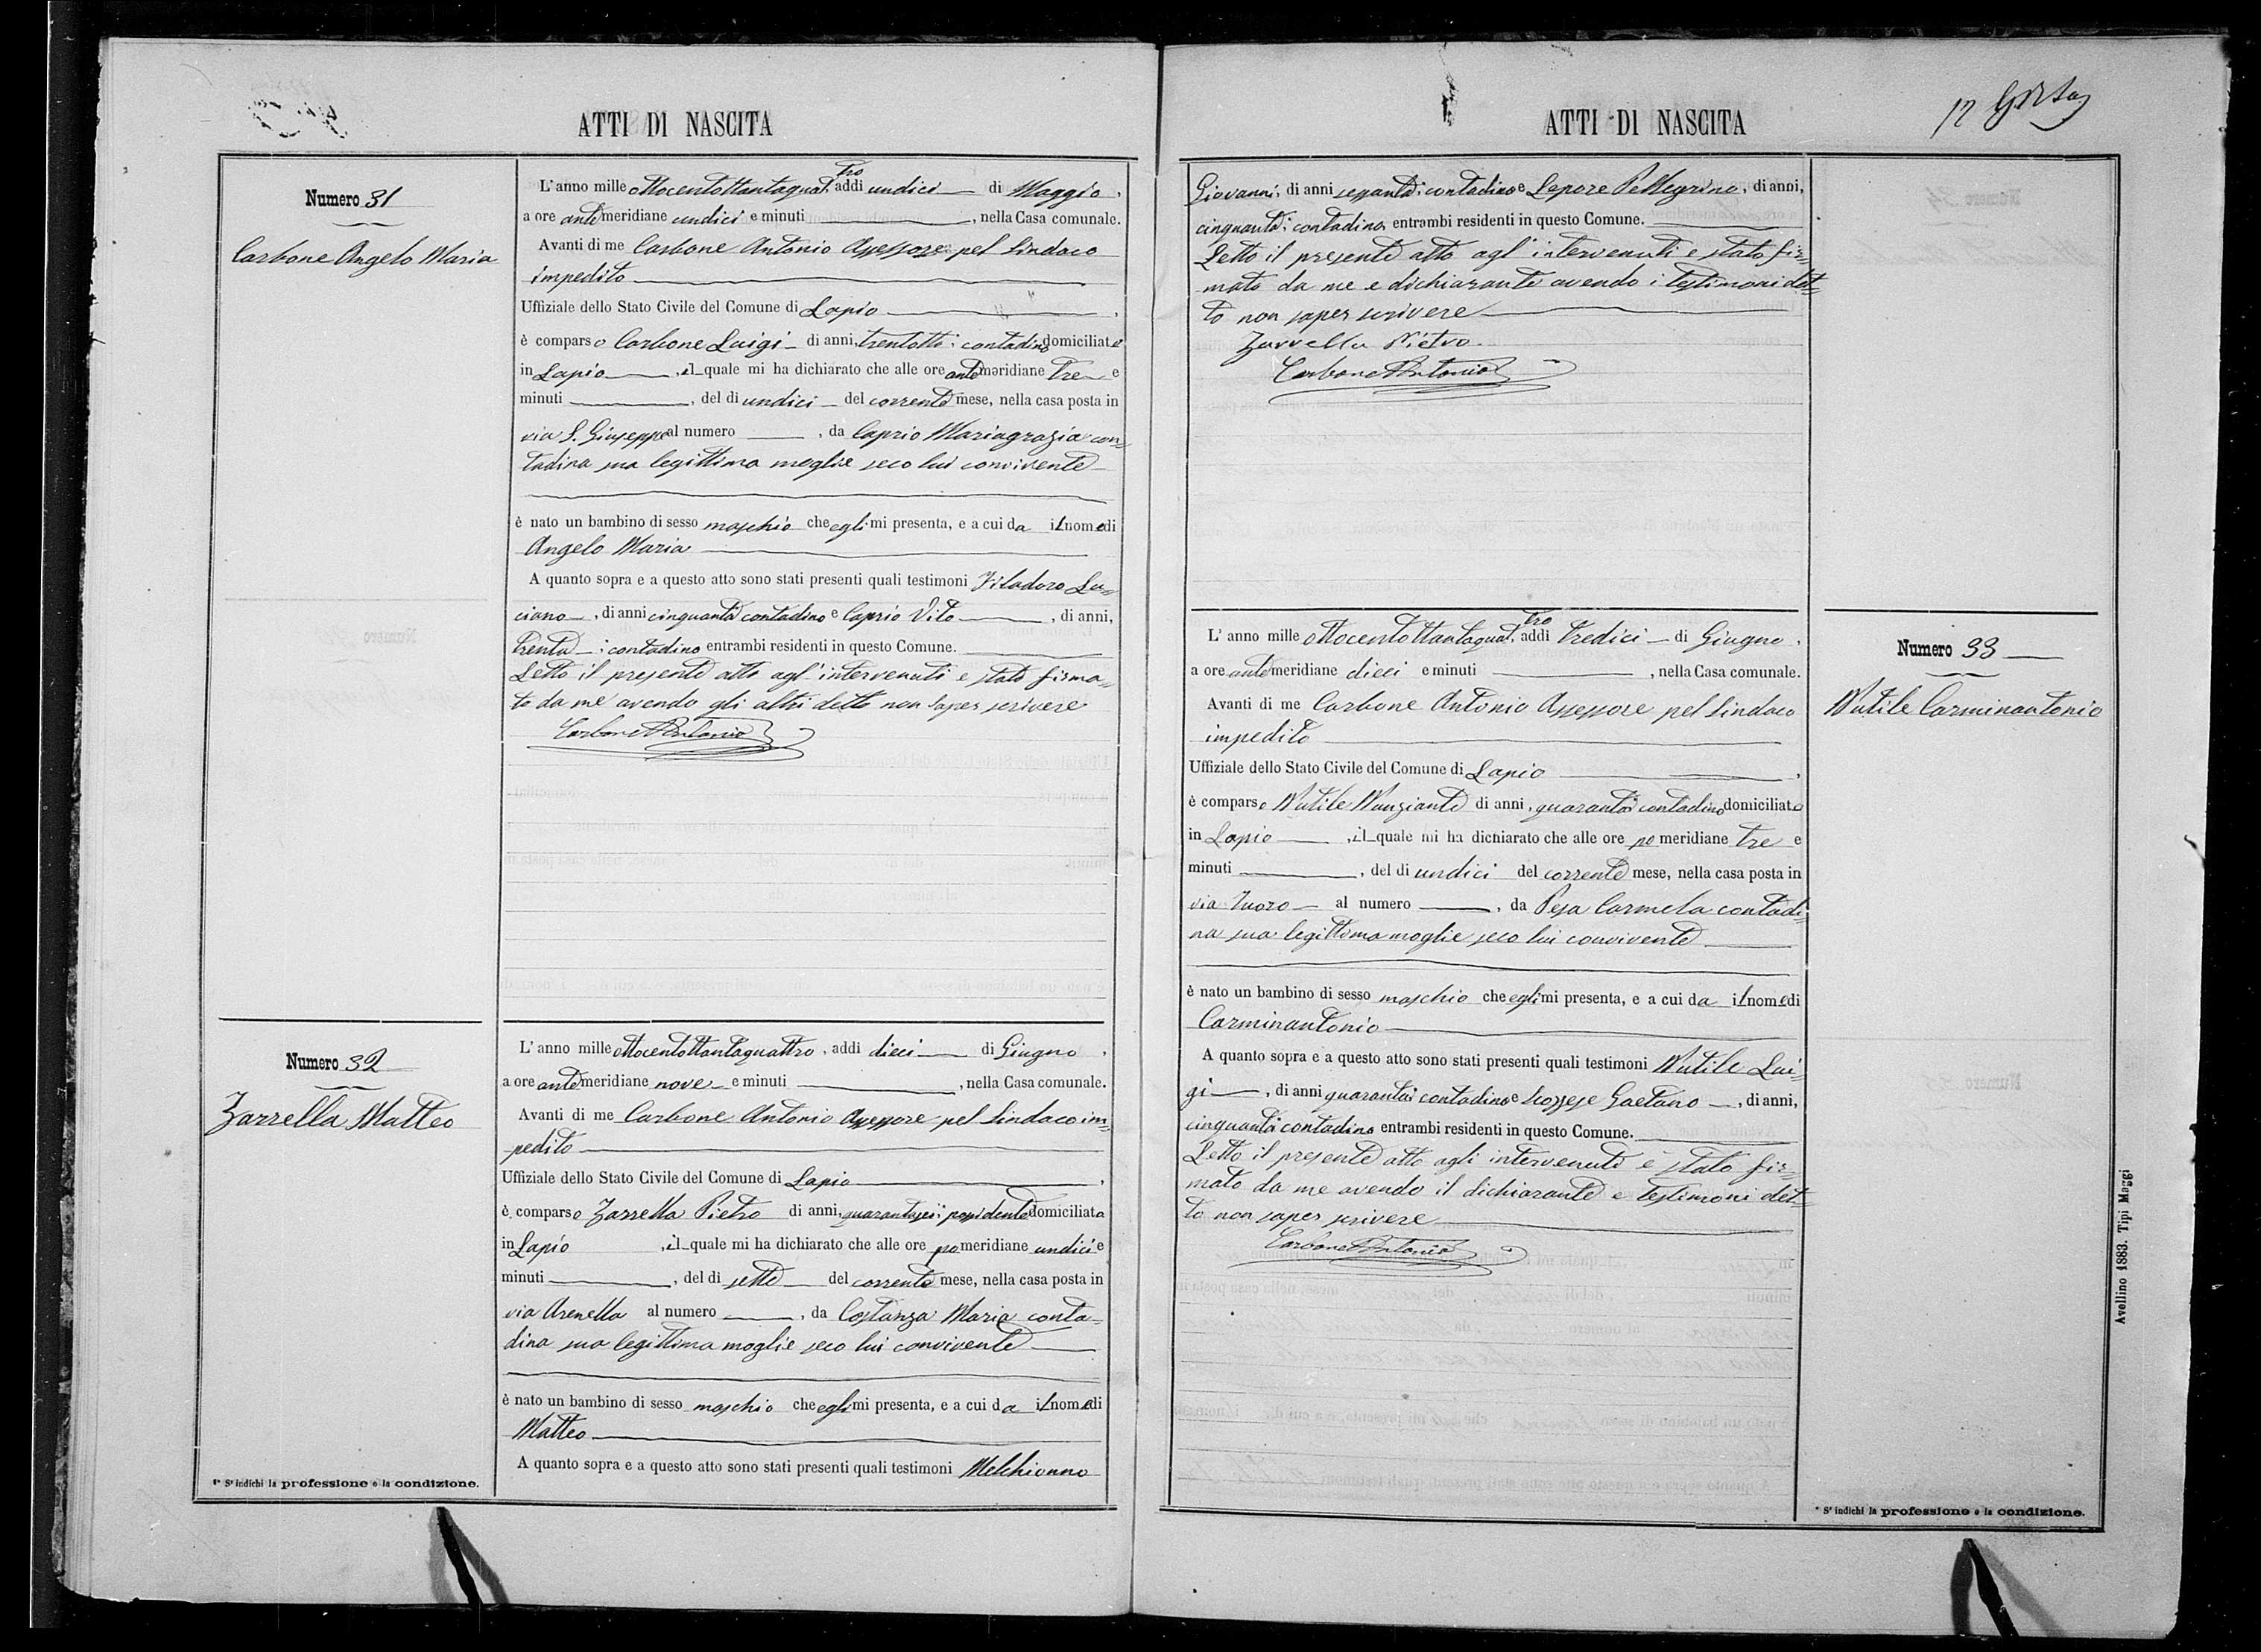 ATTI DI NASCITA
Numero 31
Carbone Angelo Maria
L'anno mille ottocentottantaquattro, addì undici di Maggio,
a ore antemeridiane undici e minuti , nella Casa comunale.
Avanti di me Carbone Antonio Assessore pel Sindaco
impedito
Uffiziale dello Stato Civile del Comune di Lapio ,
è comparso Carbone Luigi di anni, trentotto; contadino domiciliato
in Lapio , il quale mi ha dichiarato che alle ore antemeridiane tre e
minuti , del dì undici del corrente mese, nella casa posta in
via S. Giuseppe al numero , da Caprio Mariagrazia con=
tadina sua legittima moglie seco lui convivente
è nato un bambino di sesso maschio che egli mi presenta, e a cui da il nome di
Angelo Maria
A quanto sopra e a questo atto sono stati presenti quali testimoni Filadoro Lu=
ciano , di anni cinquanta contadino e Caprio Vito , di anni,
trenta ; contadino entrambi residenti in questo Comune.
Letto il presente atto agl' intervenuti e stato firma=
to da me avendo gli altri detto non saper scrivere
Carbone Antonio
Numero 32
Zarrella Matteo
L'anno mille ottocentottantaquattro, addì dieci di Giugno ,
a ore antemeridiane nove e minuti , nella Casa comunale.
Avanti di me Carbone Antonio Assessore pel Sindaco im=
pedito
Uffiziale dello Stato Civile del Comune di Lapio ,
è comparso Zarrella Pietro di anni, quarantasei; possidente domiciliato
in Lapio , il quale mi ha dichiarato che alle ore pomeridiane undici e
minuti , del dì sette del corrente mese, nella casa posta in
via Arenella al numero , da Costanza Maria conta=
dina sua legittima moglie seco lui convivente
è nato un bambino di sesso maschio che egli mi presenta, e a cui da il nome di
Matteo
A quanto sopra e a questo atto sono stati presenti quali testimoni Melchionno
1* S' indichi la professione e la condizione.
ATTI DI NASCITA
12
Giovanni, di anni sessanta; contadino e Lepore Pellegrino, di anni,
cinquanta; contadino entrambi residenti in questo Comune.
Letto il presente atto agl' intervenuti e stato fir=
mato da me e dichiarante avendo i testimoni det=
to non saper scrivere
Zarrella Pietro
Carbone Antonio
Numero 33
Nutile Carminantonio
L'anno mille ottocentottantaquattro, addì tredici di Giugno ,
a ore antemeridiane dieci e minuti , nella Casa comunale.
Avanti di me Carbone Antonio Assessore pel Sindaco
impedito
Uffiziale dello Stato Civile del Comune di Lapio ,
è comparso Nutile Nunziante di anni, quaranta contadino domiciliato
in Lapio , il quale mi ha dichiarato che alle ore pomeridiane tre e
minuti , del dì undici del corrente mese, nella casa posta in
via Tuoro al numero , da Pesa Carmela contadi=
na sua legittima moglie seco lui convivente
è nato un bambino di sesso maschio che egli mi presenta, e a cui da il nome di
Carminantonio
A quanto sopra e a questo atto sono stati presenti quali testimoni Nutile Lui=
gi , di anni quaranta contadino e Scozzese Gaetano , di anni,
cinquanta contadino entrambi residenti in questo Comune.
Letto il presente atto agli intervenuti e stato fir=
mato da me avendo il dichiarante e testimoni det=
to non saper scrivere
Carbone Antonio
* S' indichi la professione e la condizione.
Avellino 1883. Tipi Maggi